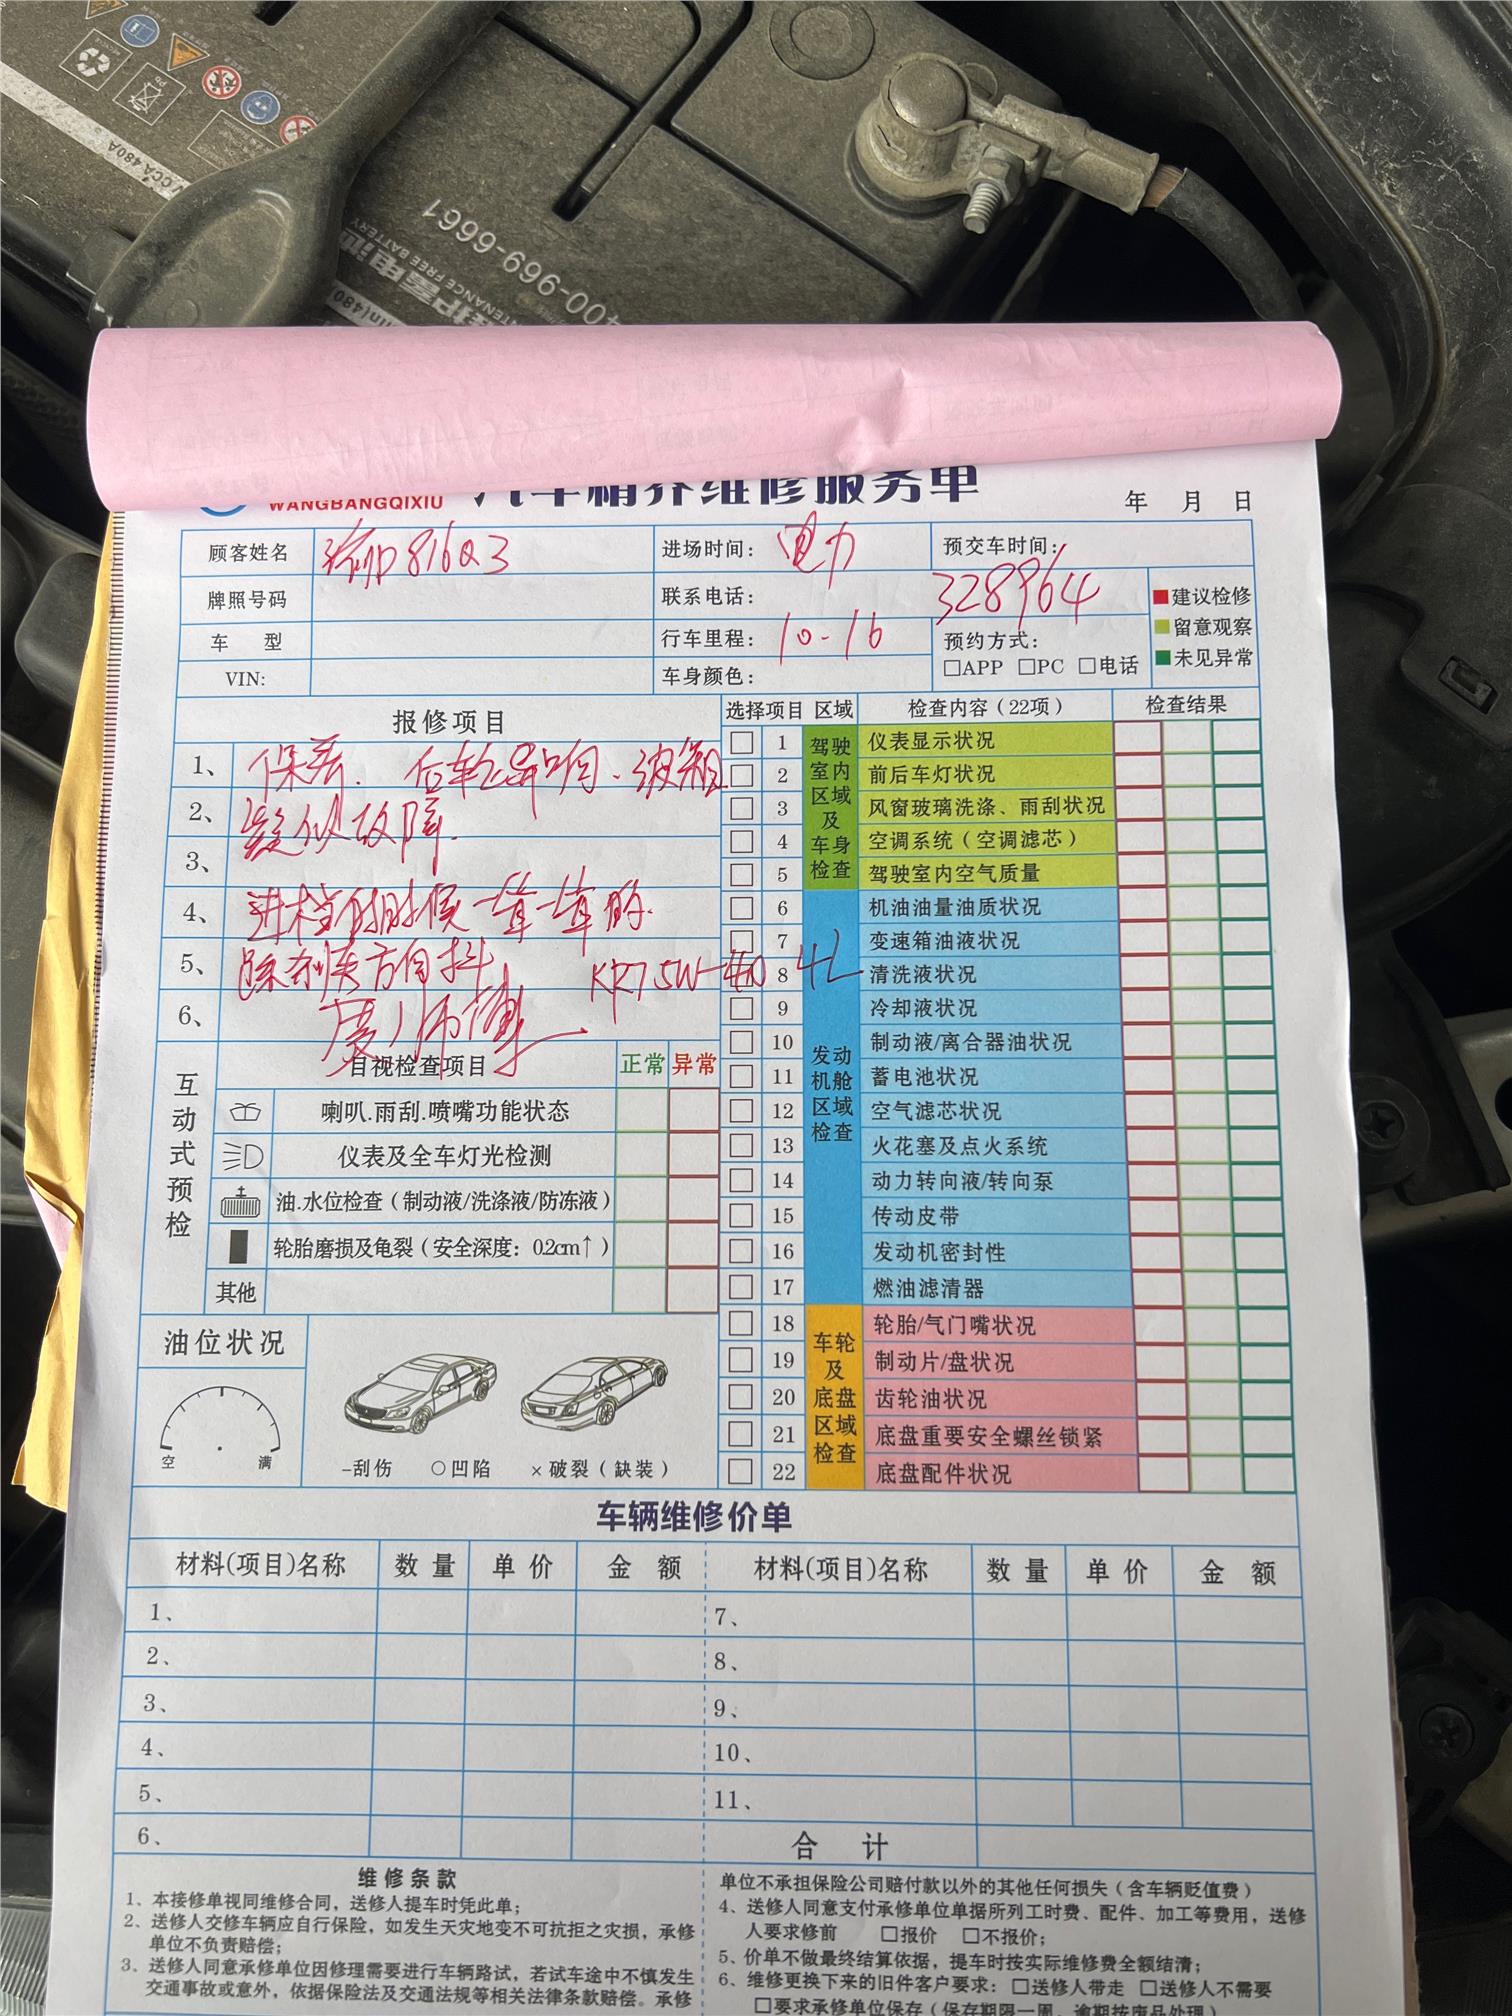 CCA 480A
400-969-6661
MAINTENANCE FREE BATTERY
WANGBANGQIXIU
汽车精养维修服务单
年 月 日
顾客姓名 渝D816Q3
进场时间：
预交车时间：
牌照号码
联系电话：
328964
车 型
行车里程： 10-16
预约方式：
□APP □PC □电话
VIN:
车身颜色：
建议检修
留意观察
未见异常
报修项目
1、保养. 后轮异响. 波箱
2、疑似故障.
3、
4、进档的时候一耸一耸的.
5、踩刹车方向抖
6、
4L
选择项目 区域 检查内容（22项） 检查结果
驾驶室内区域及车身检查
1 仪表显示状况
2 前后车灯状况
3 风窗玻璃洗涤、雨刮状况
4 空调系统（空调滤芯）
5 驾驶室内空气质量
发动机舱区域检查
6 机油油量油质状况
7 变速箱油液状况
8 清洗液状况
9 冷却液状况
10 制动液/离合器油状况
11 蓄电池状况
12 空气滤芯状况
13 火花塞及点火系统
14 动力转向液/转向泵
15 传动皮带
16 发动机密封性
17 燃油滤清器
车轮及底盘区域检查
18 轮胎/气门嘴状况
19 制动片/盘状况
20 齿轮油状况
21 底盘重要安全螺丝锁紧
22 底盘配件状况
互动式预检
目视检查项目 正常 异常
喇叭.雨刮.喷嘴功能状态
仪表及全车灯光检测
油.水位检查（制动液/洗涤液/防冻液）
轮胎磨损及龟裂（安全深度：0.2cm↑）
其他
油位状况
空 满
-刮伤 ○凹陷 ×破裂（缺装）
车辆维修价单
材料(项目)名称 数量 单价 金额 材料(项目)名称 数量 单价 金额
1、 7、
2、 8、
3、 9、
4、 10、
5、 11、
6、 合计
维修条款
1、本接修单视同维修合同，送修人提车时凭此单；
2、送修人交修车辆应自行保险，如发生天灾地变不可抗拒之灾损，承修
单位不负责赔偿；
3、送修人同意承修单位因修理需要进行车辆路试，若试车途中不慎发生
交通事故或意外，依据保险法及交通法规等相关法律条款赔偿。承修
单位不承担保险公司赔付款以外的其他任何损失（含车辆贬值费）
4、送修人同意支付承修单位单据所列工时费、配件、加工等费用，送修
人要求修前 □报价 □不报价；
5、价单不做最终结算依据，提车时按实际维修费全额结清；
6、维修更换下来的旧件客户要求：□送修人带走 □送修人不需要
□要求承修单位保存（保存期限一周，逾期按废品处理）